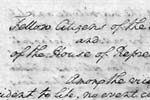 Fellow Citizens of the
and
of the House of Repres
Among the vici
ident to life, no event co